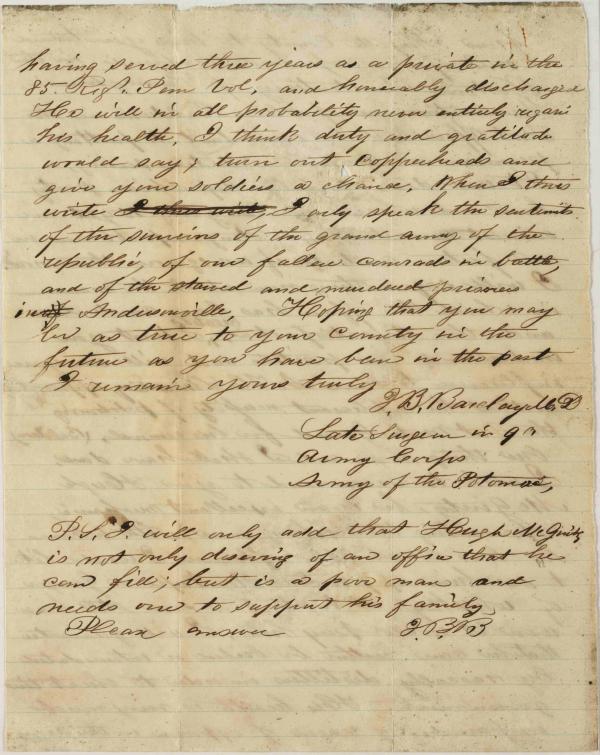 having served three years as a private in the
85 Regt. Penn Vol, and honorably discharged
He will in all probability never entirely regain
his health, I think duty and gratitude
would say; turn out copperheads and
give your soldiers a chance. When I thus
write I thus write, I only speak the sentiments
of the survivors of the grand army of the
republic, of our fallen comrads in battle,
and of the starved and murdered prisoners
in Andersonville, Hoping that you may
be as true to your country in the
future as you have been in the past
I remain yours truly
J. B. Barclay M. D
Late Surgeon in 9th
Army Corps
Army of the Potomac,
P. S. I will only add that Hugh McGuire
is not only deserving of an office that he
can fill; but is a poor man and
needs one to support his family
Please answer J. B. B